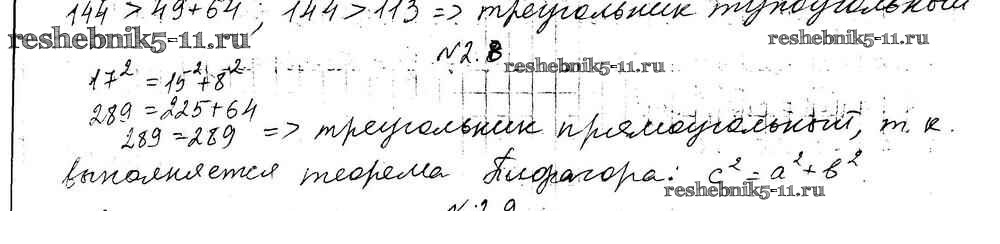 144 > 49+64; 144 > 113 => треугольник тупоугольный
reshebnik5-11.ru
reshebnik5-11.ru
№2.8
reshebnik5-11.ru
17² = 15²+8²
289 = 225+64
289 = 289 => треугольник прямоугольный, т.к.
выполняется теорема Пифагора: c² = a² + b²
reshebnik5-11.ru
№2.9